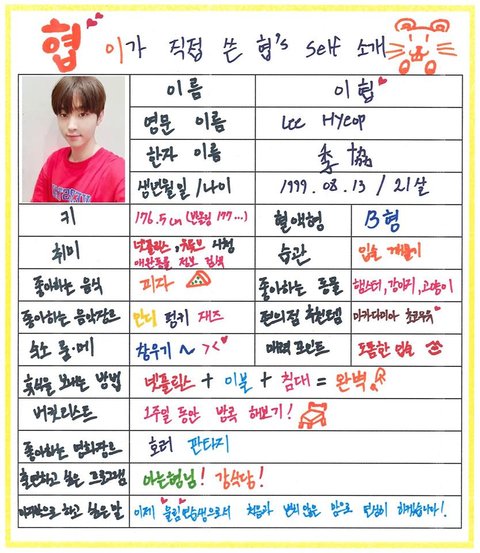 협이가 직접 쓴 협's self 소개
이름 이협
영문 이름 Lee Hyeop
한자 이름 李 協
생년월일/나이 1999. 08. 13 / 21살
키 176.5cm (반올림 177...) 혈액형 B형
취미 넷플리스, 유튜브 시청 습관 입술
애완동물 정보 검색
좋아하는 음식 피자 좋아하는 동물 햄스터, 강아지, 고양이
좋아하는 음악장르 인디 펑키 재즈 편의점 추천템 마카다미아 초코우유
숙소 룸메 창욱이~ >< 매력 포인트 도톰한 입술
휴식을 보내는 방법 넷플릭스 + 이불 + 침대 = 완벽
버킷리스트 1주일 동안 방콕 해보기!
좋아하는 영화장르 호러 판타지
출연하고 싶은 프로그램 아는형님! 강식당!
마지막으로 하고 싶은 말 이제 울림연습생으로서 처음과 변치않은 맘으로 열심히 하겠습니다!